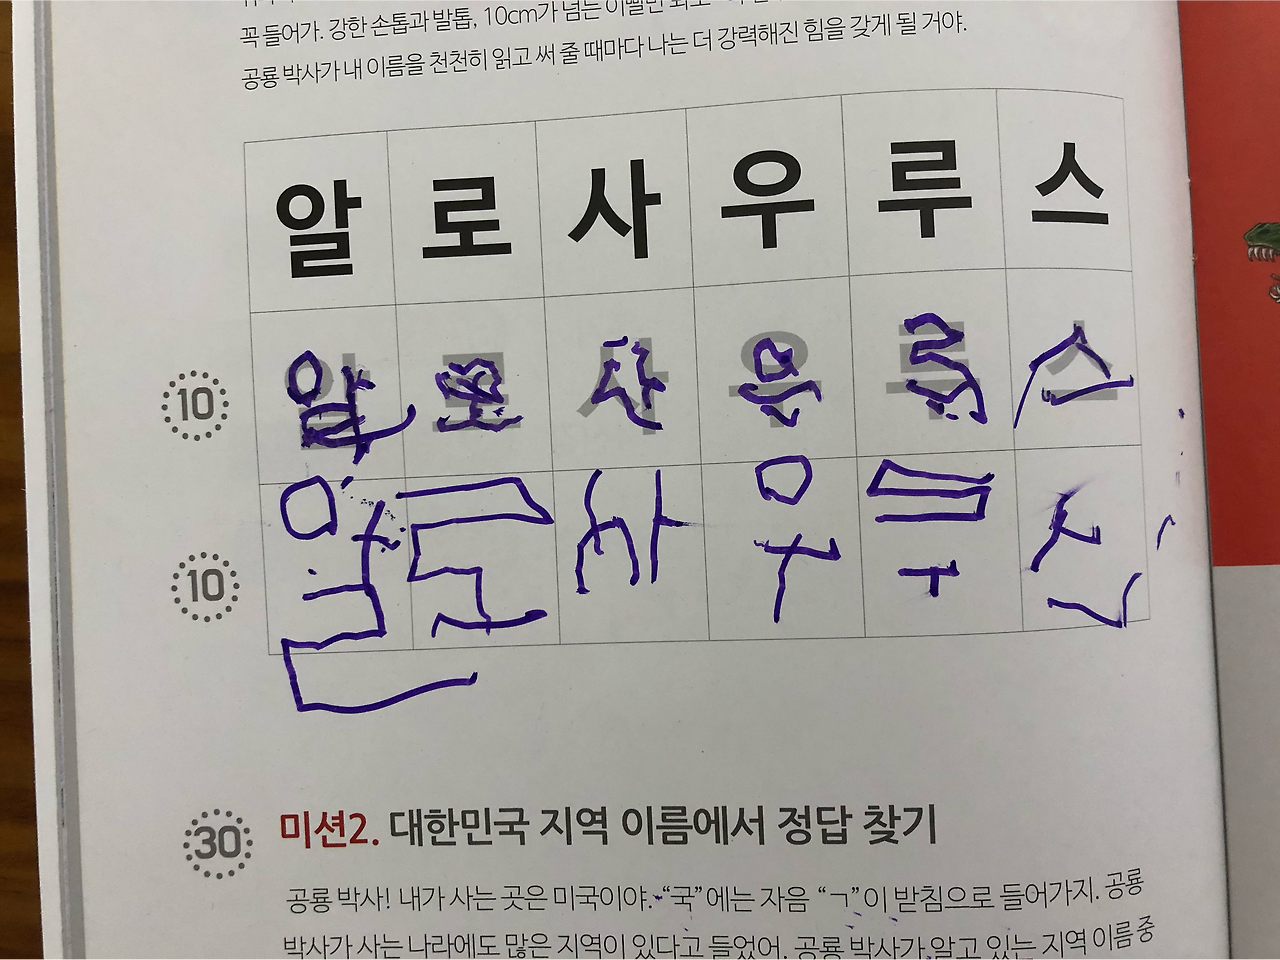 꼭 들어가. 강한 손톱과 발톱, 10cm가 넘는 이빨만
공룡 박사가 내 이름을 천천히 읽고 써 줄 때마다 나는 더 강력해진 힘을 갖게 될 거야.
알 로 사 우 루 스
10 알 로 사 우 루 스
10 알 로 사 우 루 스
30 미션2. 대한민국 지역 이름에서 정답 찾기
공룡 박사! 내가 사는 곳은 미국이야. “국”에는 자음 “ㄱ”이 받침으로 들어가지. 공룡
박사가 사는 나라에도 많은 지역이 있다고 들었어. 공룡 박사가 알고 있는 지역 이름 중